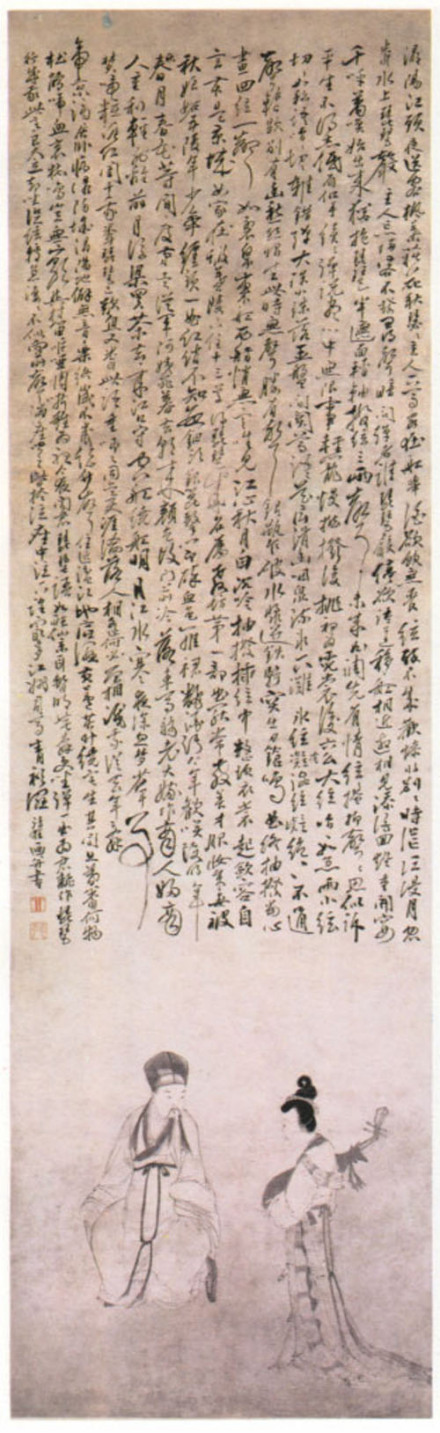 潯陽江頭夜送客楓葉荻花秋瑟瑟主人下馬客在船舉酒欲飲無管絃醉不成歡慘將別別時茫茫江浸月忽
聞水上琵琶聲主人忘歸客不發尋聲暗問彈者誰琵琶聲停欲語遲移船相近邀相見添酒回燈重開宴
千呼萬喚始出來猶抱琵琶半遮面轉軸撥絃三兩聲未成曲調先有情絃絃掩抑聲聲思似訴
平生不得志低眉信手續續彈說盡心中無限事輕攏慢撚抹復挑初為霓裳後六么大絃嘈嘈如急雨小絃
切切如私語切切錯雜彈大珠小珠落玉盤間關鶯語花底滑幽咽泉流水下灘水絃凝絕不通
聲暫歇別有幽愁暗恨生此時無聲勝有聲銀瓶乍破水漿迸鐵騎突出刀鎗鳴曲終抽撥當心
畫四絃一聲如裂帛東船西舫悄無言唯見江心秋月白沉吟抽撥插絃中整頓衣裳起斂容自
言本是京城女家住蝦蟆陵下住十三學得琵琶成名屬教坊第一部曲罷常教善才服妝成每被
秋娘妒五陵年少爭纏頭一曲紅綃不知數鈿頭銀篦擊節碎血色羅裙翻酒污今年歡笑復明年
秋月春風等閒度弟走從軍阿姨死暮去朝來顏色故門前冷落車馬稀老大嫁作商人婦商
人重利輕別離前月浮梁買茶去去來江口守空船繞船明月江水寒夜深忽夢少年事
夢啼粧淚紅闌干我聞琵琶已歎息又聞此語重唧唧同是天涯淪落人相逢何必曾相識我從去年辭
帝京謫居臥病潯陽城潯陽地僻無音樂終歲不聞絲竹聲住近湓江地低濕黃蘆苦竹繞宅生其間旦暮聞何物
啼血猿哀鳴豈無山歌與村笛嘔啞嘲哳難為聽今夜聞君琵琶語如聽仙樂耳暫明莫辭更坐彈一曲為君翻作琵琶
行感我此言良久立却坐促絃絃轉急淒淒不似向前聲滿座重聞皆掩泣座中泣下誰最多江州司馬青衫濕